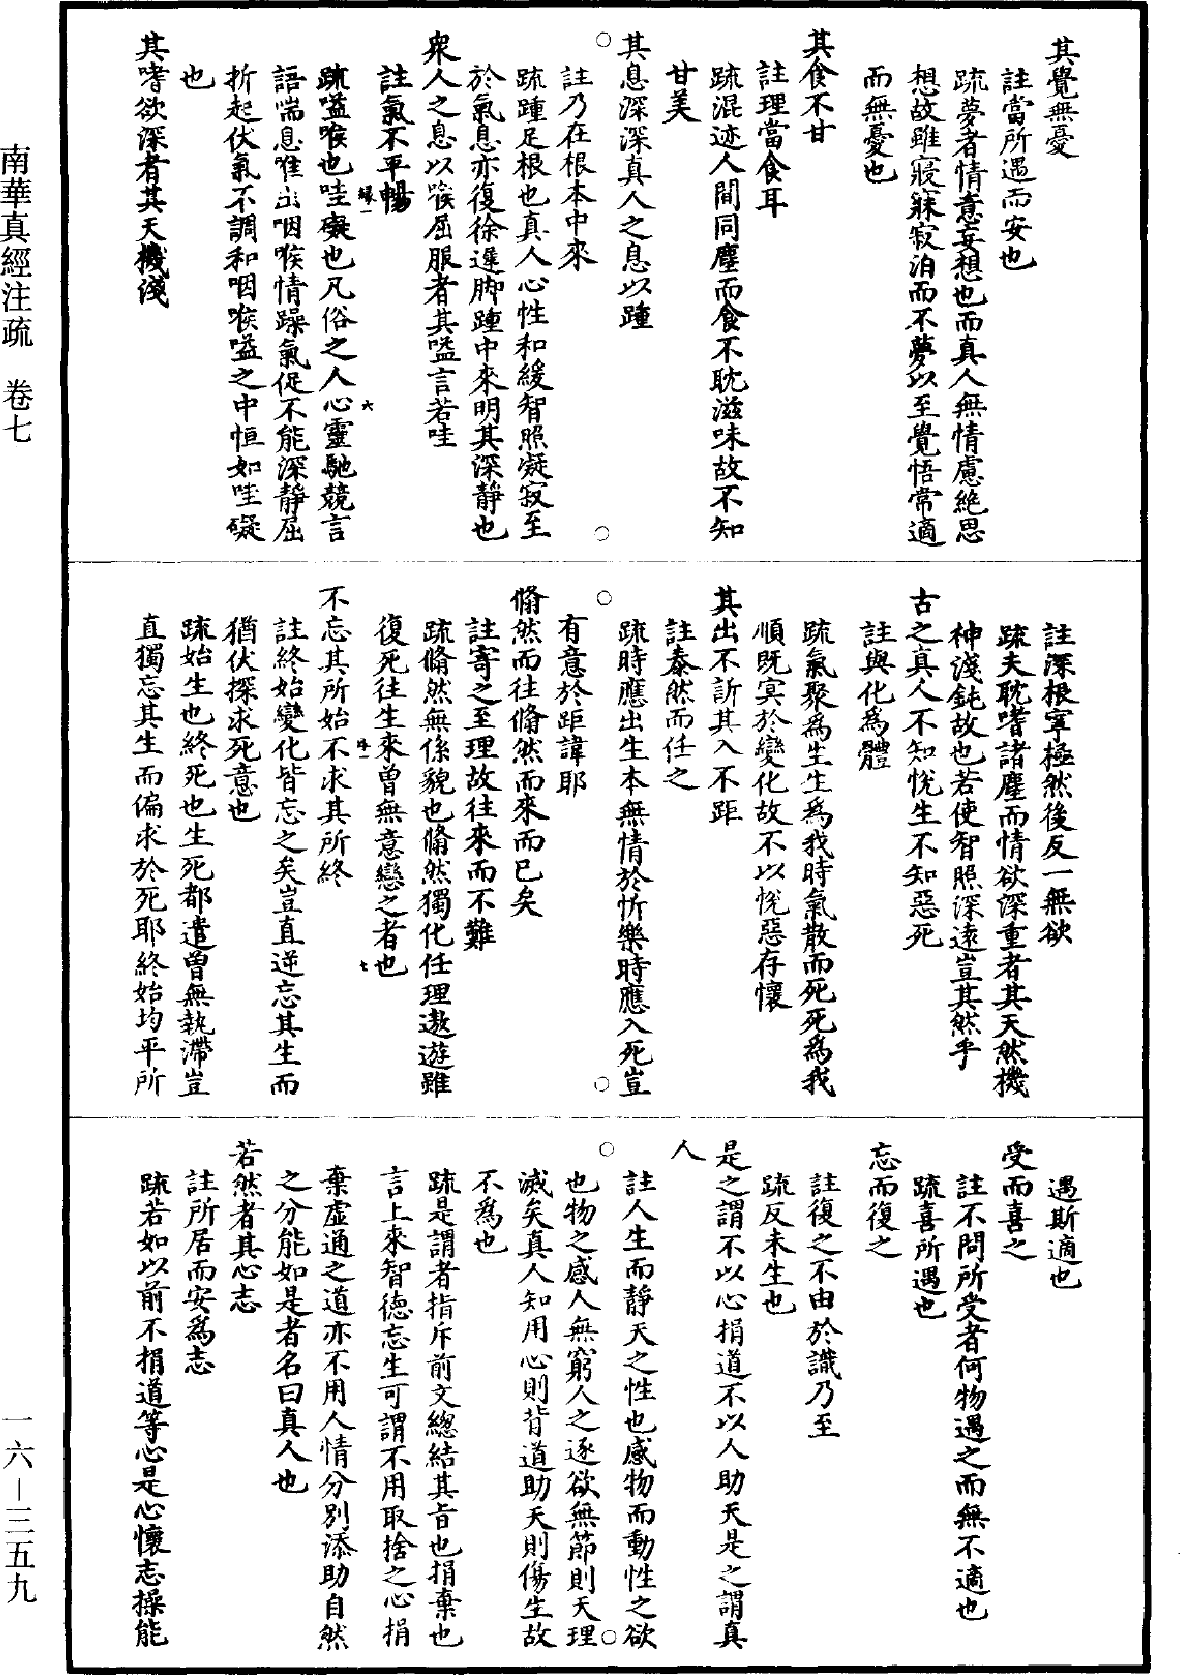 其覺無憂
註當所遇而安也
疏夢者情意妄想也而真人無情慮絶思
想故雖寢寐寂泊而不夢以至覺悟常適
而無憂也
其食不甘
註理當食耳
疏混迹人間同塵而食不耽滋味故不知
甘美
其息深深真人之息以踵
註乃在根本中來
疏踵足根也真人心性和緩智照凝寂至
於氣息亦復徐遲脚踵中來明其深靜也
衆人之息以喉屈服者其嗌言若哇
註氣不平暢
疏嗌喉也哇礙也凡俗之人心靈馳競言
語喘息唯出咽喉情躁氣促不能深靜屈
折起伏氣不調和咽喉嗌之中恒如哇礙
也
其嗜欲深者其天機淺
註深根寧極然後反一無欲
疏夫耽嗜諸塵而情欲深重者其天然機
神淺鈍故也若使智照深遠豈其然乎
古之真人不知悅生不知惡死
註與化為體
疏氣聚為生生為我時氣散而死死為我
順既冥於變化故不以悅惡存懷
其出不訢其入不距
註泰然而任之
疏時應出生本無情於忻樂時應入死豈
有意於距諱耶
翛然而往翛然而來而已矣
註寄之至理故往來而不難
疏翛然無係貌也翛然獨化任理遨遊雖
復死往生來曾無意戀之者也
不忘其所始不求其所終
註終始變化皆忘之矣豈直逆忘其生而
猶伏探求死意也
疏始生也終死也生死都遣曾無執滯豈
直獨忘其生而偏求於死耶終始均平所
遇斯適也
受而喜之
註不問所受者何物遇之而無不適也
疏喜所遇也
忘而復之
註復之不由於識乃至
疏反未生也
是之謂不以心捐道不以人助天是之謂真
人
註人生而靜天之性也感物而動性之欲
也物之感人無窮人之逐欲無節則天理
滅矣真人知用心則背道助天則傷生故
不為也
疏是謂者指斥前文總結其旨也捐棄也
言上來智德忘生可謂不用取捨之心捐
棄虛通之道亦不用人情分別添助自然
之分能如是者名曰真人也
若然者其心志
註所居而安為志
疏若如以前不捐道等心是心懷志操能
南華真經注疏　卷七
一六—三五九